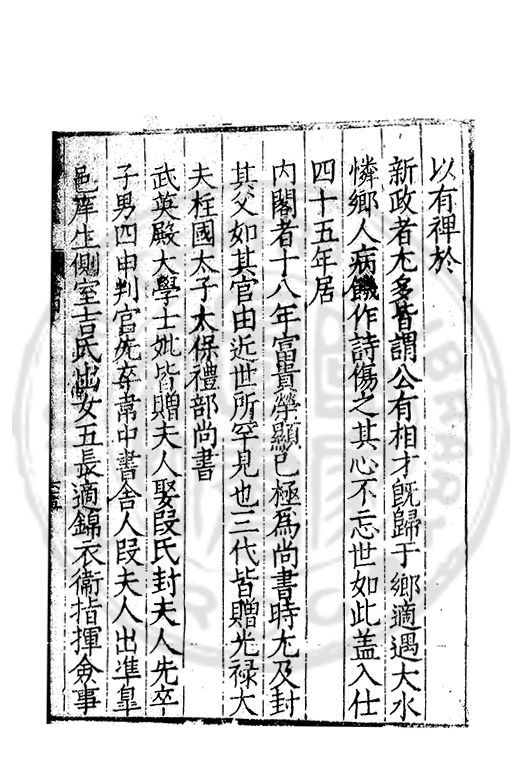 以有裨於
新政者尤多皆謂公有相才旣歸于鄉適遇大水
憐鄉人病饑作詩傷之其心不忘世如此盖入仕
四十五年居
内閣者十八年富貴榮顯已極為尚書時尤及封
其父如其官由近世所罕見也三代皆贈光禄大
夫柱國太子太保禮部尚書
武英殿大學士妣皆贈夫人娶段氏封夫人先卒
子男四申判官先卒韋中書舍人段夫人出準臯
邑庠生側室吉氏出女五長適錦衣衛指揮僉事